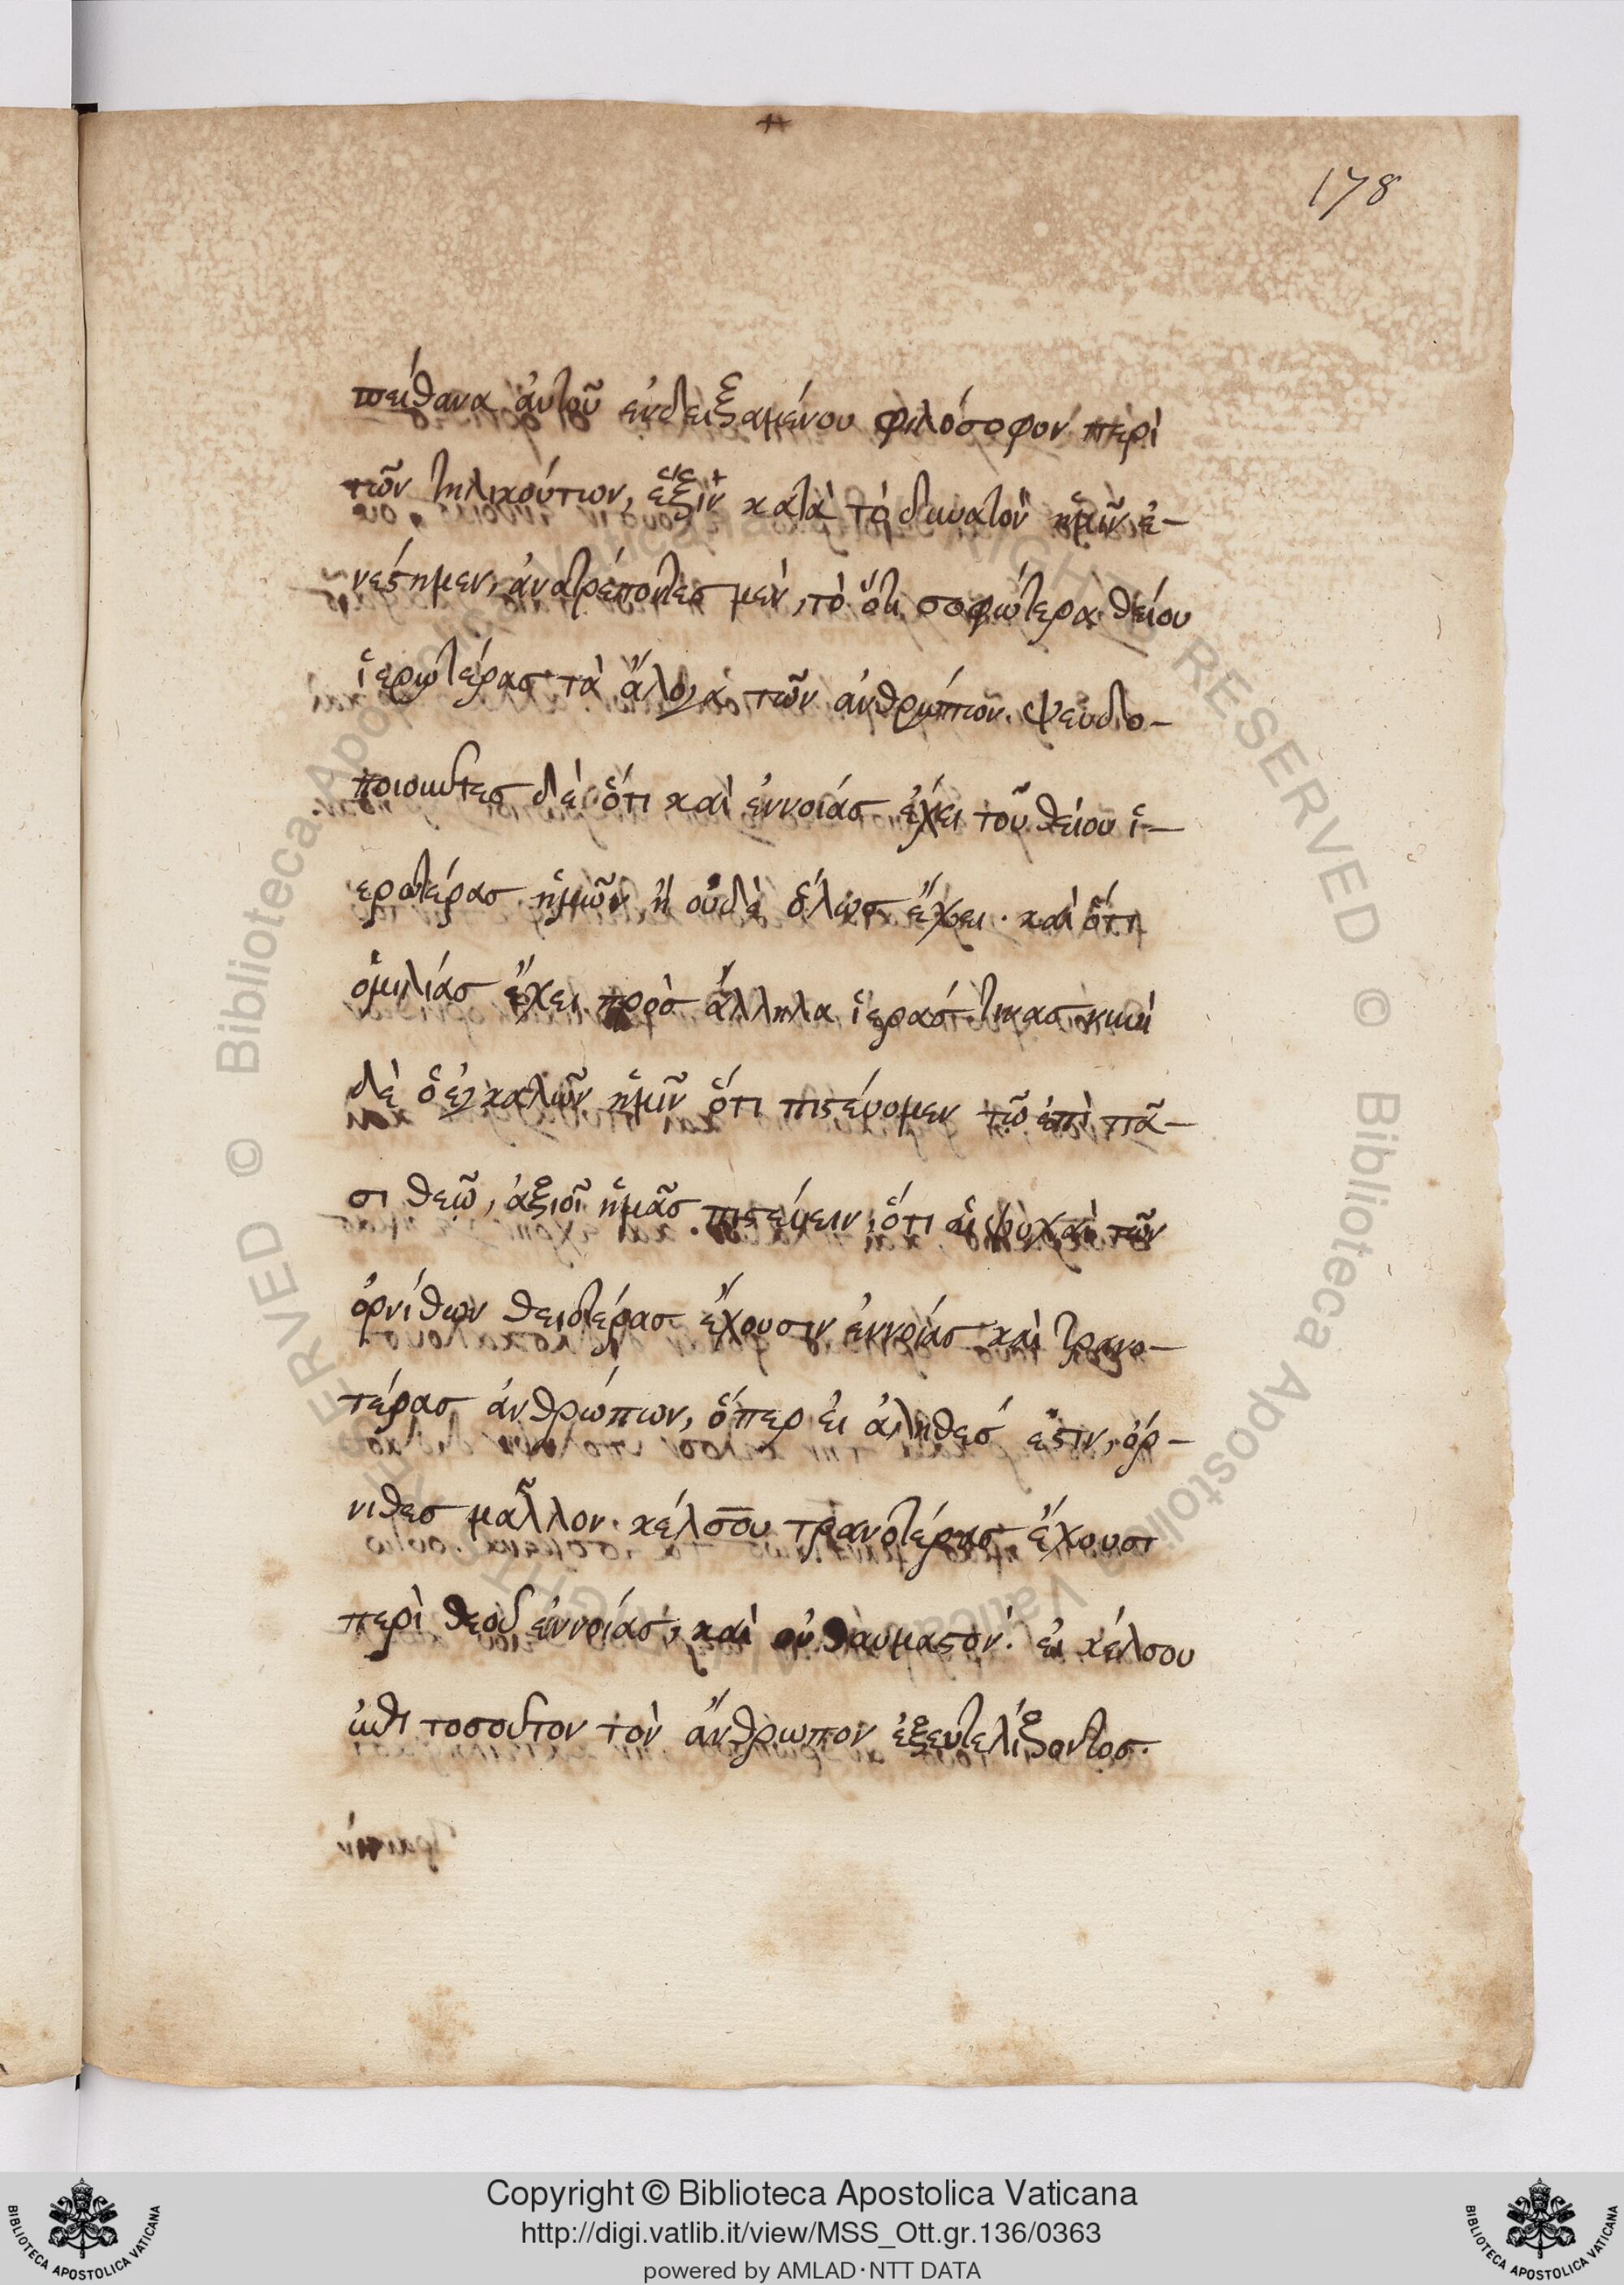 178
πείθανα ἀυτοῦ ἐνδειξαμένου φιλόσοφον περὶ
τῶν τηλικούτων, κατὰ τὸ δυνατὸν ἡμῖν ἐ-
νέστημεν, ἀνατρέποντεσ μὲν, τὸ ὅτι σοφώτερα θείου
ἱερωτέρασ τὰ ἄλογα τῶν ἀνθρώπων. ψευδο-
ποιοῦντεσ δὲ ὅτι καὶ ἐννοίασ ἔχει τοῦ θείου ἱ-
ερωτέρασ ἡμῶν ἢ οὐδὲ ὅλωσ ἔχει. καὶ ὅτι
ὁμιλίασ ἔχει πρὸσ ἄλληλα
δὲ ὁ ἐγκαλῶν ἡμῖν ὅτι πιστεύομεν τῶ ἐπὶ πᾶ-
σι θεῶ, ἀξιοῖ ἡμᾶσ πιστεύειν, ὅτι αἱ ψυχαὶ τῶν
ὀρνίθων θειοτέρασ ἔχουσιν ἐννοίασ καὶ τρανο-
τέρασ ἀνθρώπων, ὅπερ ἐι ἀληθέσ ἐστιν, ὄρ-
νιθεσ μᾶλλον. κέλσου τρανοτέρασ ἔχουσι
περὶ θεοῦ ἐννοίασ, καὶ οὐ θαυμαστόν. ἐι κέλσου
τοσοῦτον τὸν ἄνθρωπον ἐξευτελίξαντοσ.
Copyright © Biblioteca Apostolica Vaticana
http://digi.vatlib.it/view/MSS_Ott.gr.136/0363
powered by AMLAD·NTT DATA